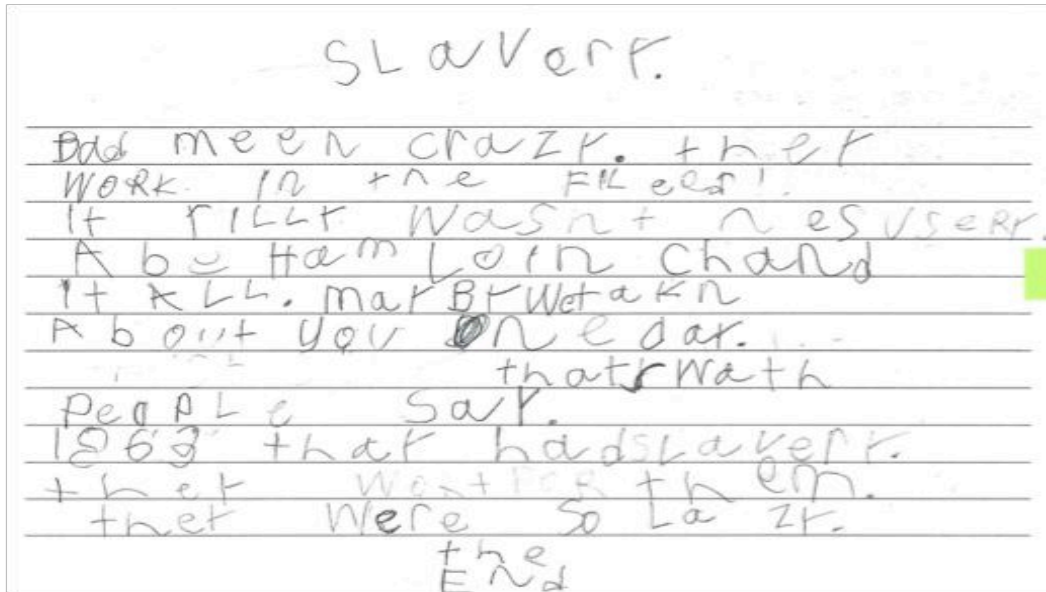 SLavery.
Bad meen crazy. they
WORK. in the FILeeld!.
It rILLy Wasnt nesuseRy.
Abe Ham Loin chand
It ALL. mayByWetakn
About you one day.
thatsWath
PeopLe say.
1863 thay hadsLavery.
they WorktFoR them.
they were so Lazy.
the
End